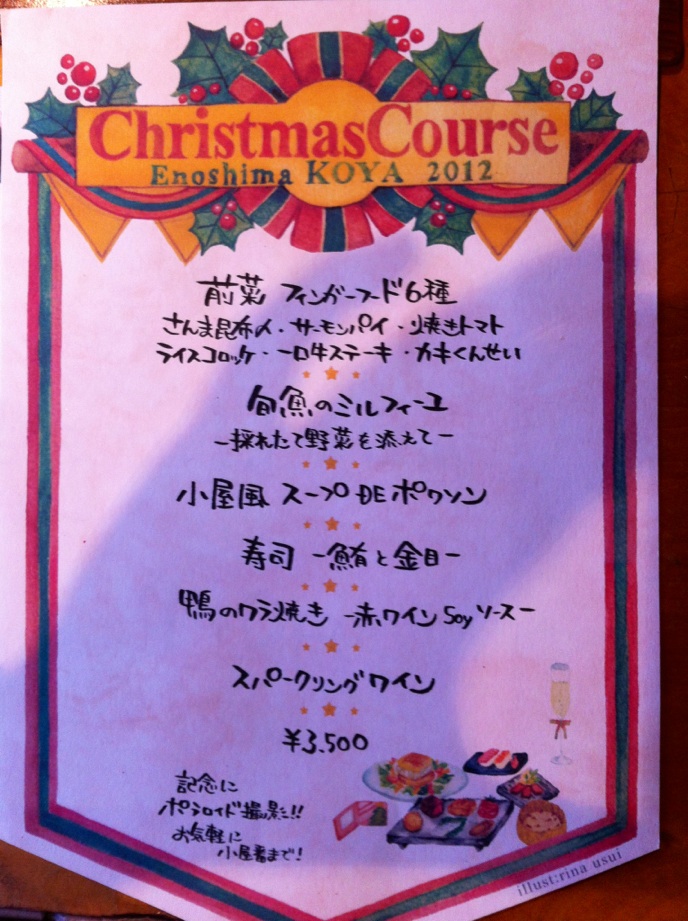 ChristmasCourse
Enoshima KOYA 2012
前菜 フィンガーフード6種
さんま昆布〆・サーモンパイ・焼きトマト
ライスコロッケ・一口牛ステーキ・カキくんせい
旬魚のミルフィーユ
ー採れたて野菜を添えてー
小屋風 スープDEポワソン
寿司 ー鮪と金目ー
鴨のワラ焼き ー赤ワインSoyソースー
スパークリングワイン
¥3.500
記念に
ポラロイド撮影!!
お気軽に
小屋番まで!
illust:rina usui